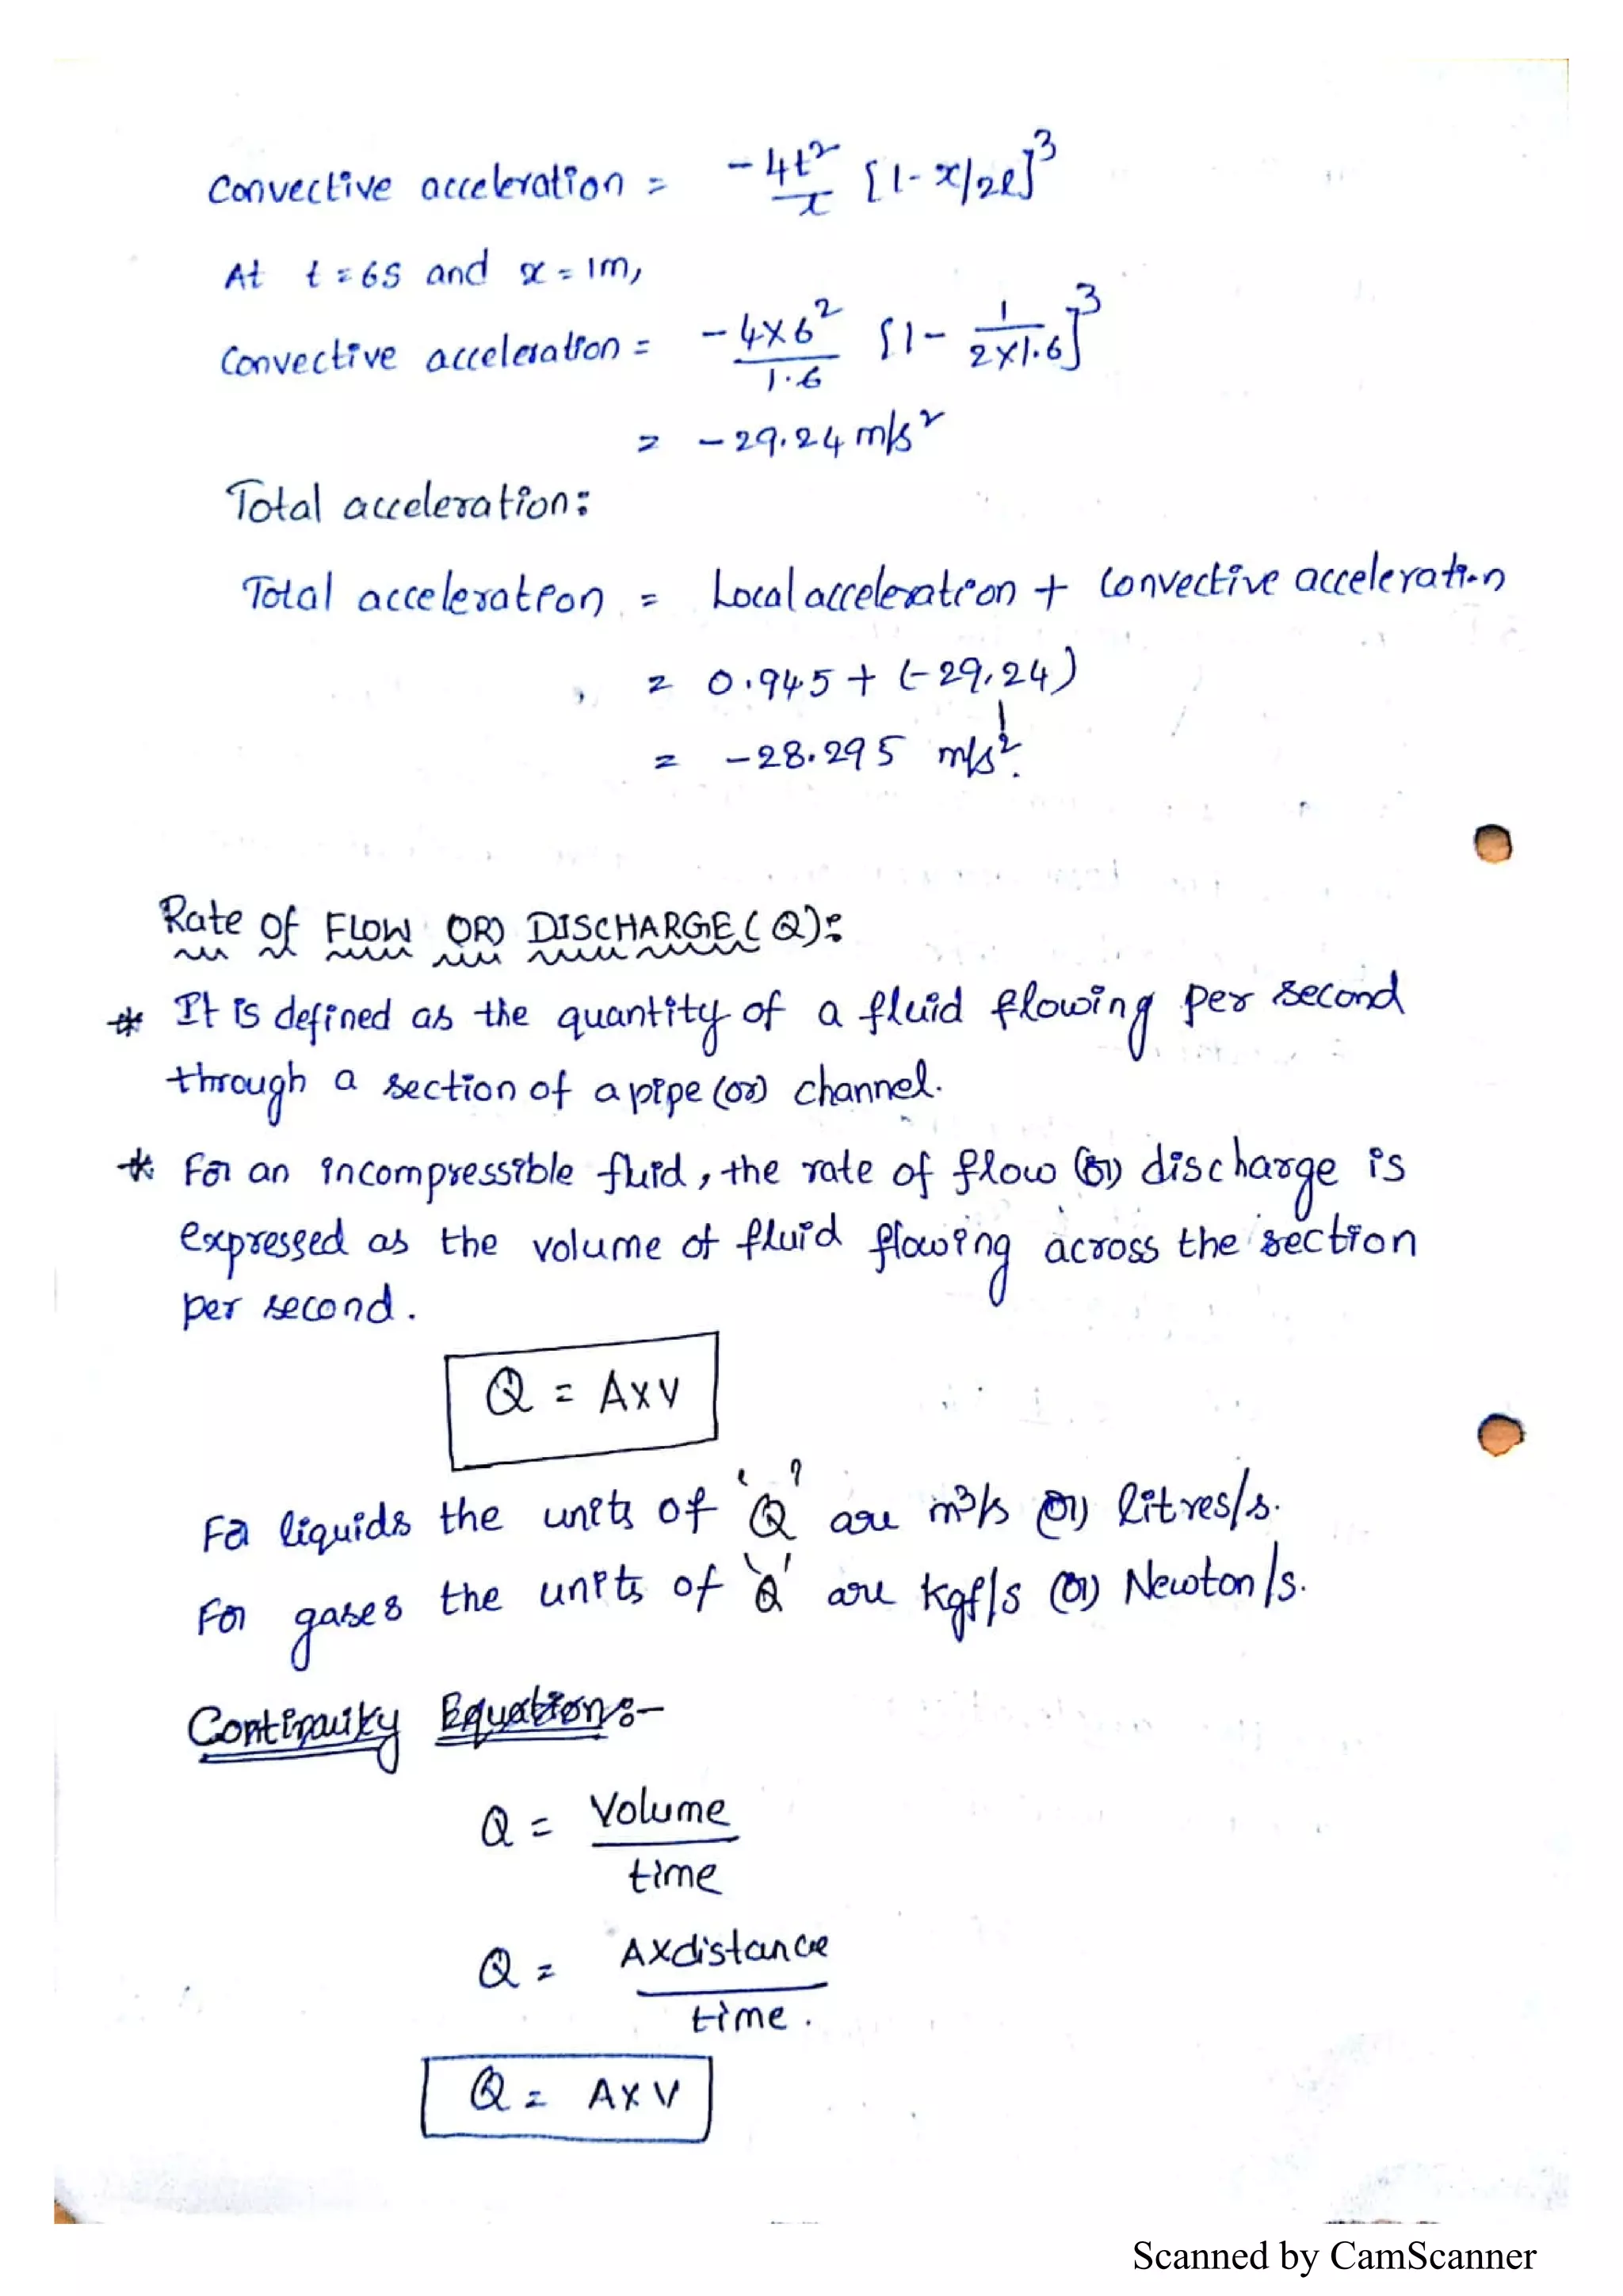 Convective acceleration = -4t²/x [1-x/2l]³
At t=6s and x=1m,
Convective acceleration = -4×6²/1.6 [1- 1/2×1.6]³
= -29.24 m/s²
Total acceleration:
Total acceleration = Local acceleration + Convective acceleration
= 0.945 + (-29.24)
= -28.295 m/s².
Rate of FLOW OR) DISCHARGE (Q):
* It is defined as the quantity of a fluid flowing per second
through a section of a pipe (or) channel.
* For an incompressible fluid, the rate of flow (or) discharge is
expressed as the volume of fluid flowing across the section
per second.
Q = A×V
For liquids the units of 'Q' are m³/s (or) litres/s.
For gases the units of 'Q' are kgf/s (or) Newton/s.
Continuity Equation:-
Q = Volume
time
Q = A×distance
time.
Q = A×V
Scanned by CamScanner